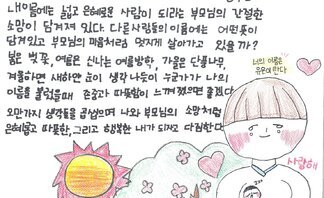 내이름에는 넓고 은혜로운 사람이 되라는 부모님의 간절한
소망이 담겨져 있다. 다른사람들의 이름에는 어떤뜻이
담겨있고 부모님의 마음처럼 멋지게 살아가고 있을까?
봄은 벚꽃, 여름은 신나는 여름방학, 가을은 단풍나무,
겨울하면 새하얀 눈이 생각 나듯이 누군가가 나의
이름을 불렀을때 존중과 따뜻함이 느껴졌으면 좋겠다.
오만가지 생각들을 곱씹으며 나와 부모님의 소망처럼
은혜롭고 따뜻한, 그리고 행복한 내가 되자고 다짐한다.
너의 이름은
사랑해